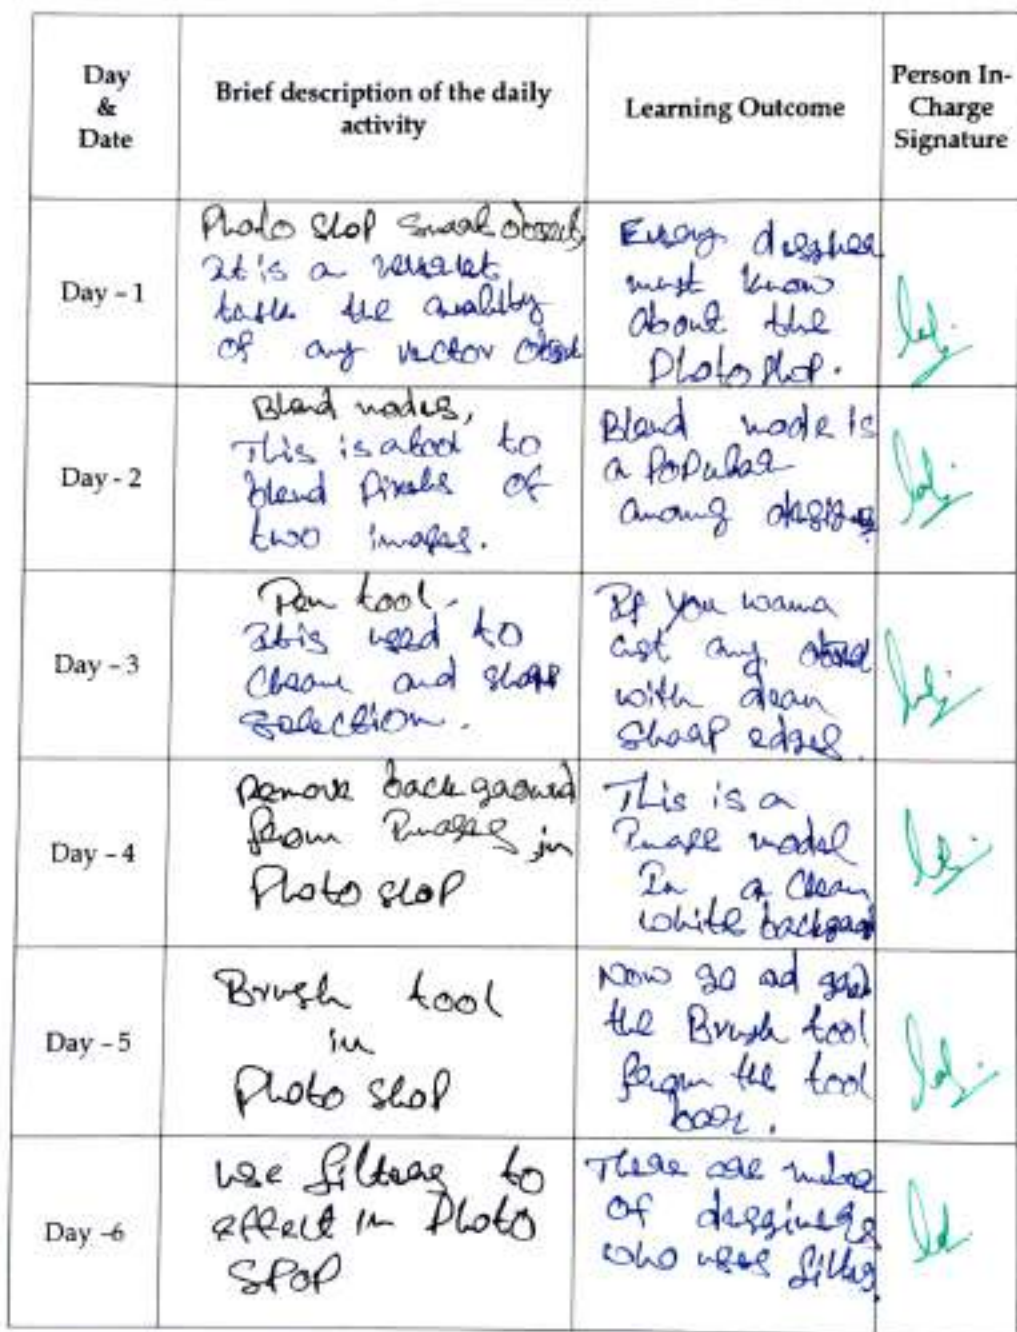 Day
&
Date
Brief description of the daily
activity
Learning Outcome
Person In-
Charge
Signature
Day - 1
Photo Shop Smart objects
It is a
task the quality
of any vector object
Every designer
must know
about the
Photo Shop.
Day - 2
Blend modes,
This is a tool to
blend Pixels of
two images.
Blend mode is
a Popular
among
Day - 3
Pen tool.
It is used to
Clean and sharp
selection.
If you wanna
cut any object
with clean
sharp edges.
Day - 4
Remove background
from Images in
Photo shop
This is a
Image model
In a clean
white background
Day - 5
Brush tool
in
Photo shop
Now go ad grab
the Brush tool
from the tool
bar.
Day -6
use filters to
effect in Photo
SPOP
There are
of
who uses filters.